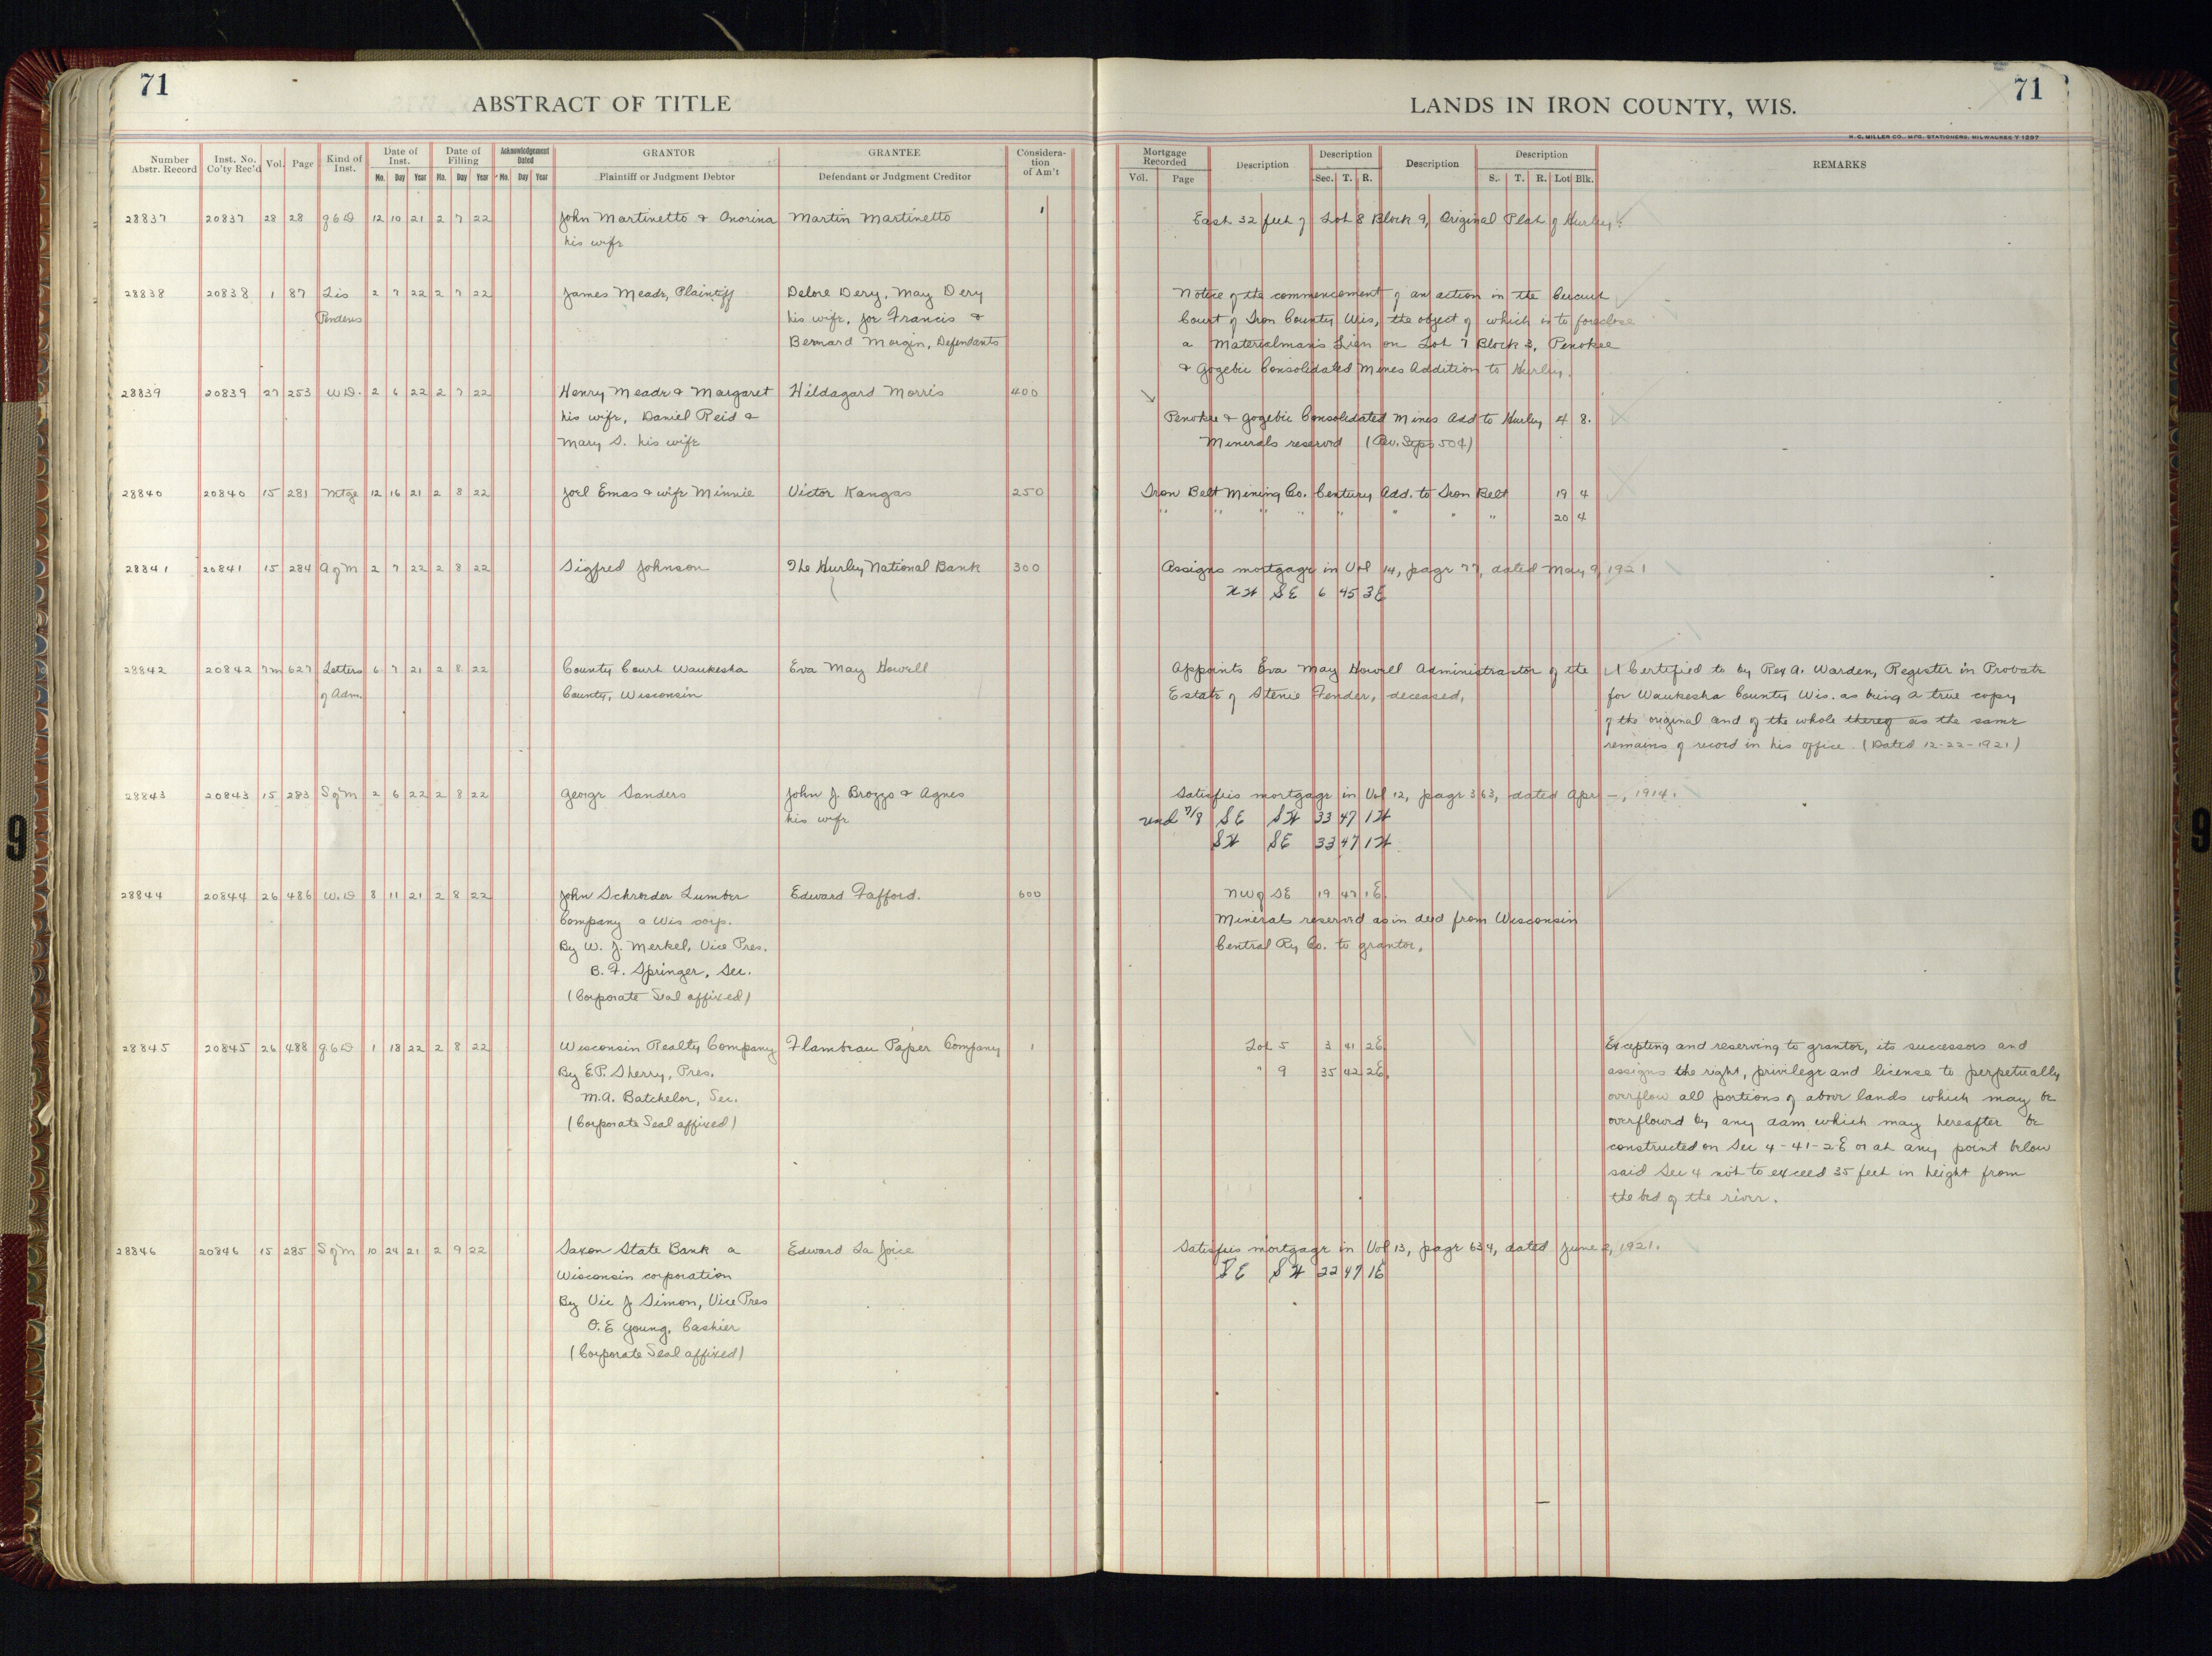 71
ABSTRACT OF TITLE
LANDS IN IRON COUNTY, WIS.
71
H. C. MILLER CO., MFG. STATIONERS, MILWAUKEE Y 1297
Number Abstr. Record | Inst. No. Co'ty Rec'd | Vol. | Page | Kind of Inst. | Date of Inst. Mo. Day Year | Date of Filling Mo. Day Year | Acknowledgement Dated Mo. Day Year | GRANTOR Plaintiff or Judgment Debtor | GRANTEE Defendant or Judgment Creditor | Consideration of Am't | Mortgage Recorded Vol. Page | Description | Description Sec. T. R. | Description | Description S. T. R. Lot Blk. | REMARKS
28837 20837 28 28 q6D 12 10 21 2 7 22 John Martinetto & Onorina Martin Martinetto 1 East 32 feet of Lot 8 Block 9, Original Plat of Hurley.
his wife
28838 20838 1 87 Lis 2 7 22 2 7 22 James Meade, Plaintiff Delore Dery, May Dery Notice of the commencement of an action in the Circuit
Pendens his wife, Joe Francis & Court of Iron County Wis, the object of which is to foreclose
Bernard Morgin, Defendants a Materialman's Lien on Lot 7 Block 3, Penokee
& Gogebic Consolidated Mines Addition to Hurley.
28839 20839 27 253 W.D. 2 6 22 2 7 22 Henry Meade & Margaret Hildagard Morris 400
his wife, Daniel Reid & Penokee & Gogebic Consolidated Mines Add to Hurley 4 8.
Mary S. his wife Minerals reserved (Rev. Stps 50¢)
28840 20840 15 281 Mtge 12 16 21 2 8 22 Joel Emas & wife Minnie Victor Kangas 250 Iron Belt Mining Co. Century Add. to Iron Belt 19 4
" " " " " " " " 20 4
28841 20841 15 284 A of M 2 7 22 2 8 22 Sigfred Johnson The Hurley National Bank 300 Assigns mortgage in Vol 14, page 77, dated May 9, 1921
NW SE 6 45 3E
28842 20842 7m 627 Letters 6 7 21 2 8 22 County Court Waukesha Eva May Howell Appoints Eva May Howell Administrator of the A Certified to by Rex A. Warden, Register in Probate
of Adm. County, Wisconsin Estate of Stenie Fender, deceased, for Waukesha County Wis. as being a true copy
of the original and of the whole thereof as the same
remains of record in his office. (Dated 12-22-1921)
28843 20843 15 283 S of M 2 6 22 2 8 22 George Sanders John J. Brozzo & Agnes Satisfies mortgage in Vol 12, page 363, dated Apr —, 1914.
his wife und 7/8 SE SW 33 47 1W
SW SE 33 47 1W
28844 20844 26 486 W.D 8 11 21 2 8 22 John Schroeder Lumber Edward Fafford. 600 NW of SE 19 47 1E.
Company a Wis corp. Minerals reserved as in deed from Wisconsin
By W. J. Merkel, Vice Pres. Central Ry Co. to grantor,
B. F. Springer, Sec.
(Corporate Seal affixed)
28845 20845 26 488 q6D 1 18 22 2 8 22 Wisconsin Realty Company Flambeau Paper Company 1 Lot 5 3 41 2E. Excepting and reserving to grantor, its successors and
By E.P. Sherry, Pres. " 9 35 42 2E. assigns the right, privilege and license to perpetually
M.A. Batchelor, Sec. overflow all portions of above lands which may be
(Corporate Seal affixed) overflowed by any dam which may hereafter be
constructed on Sec 4-41-2E or at any point below
said Sec 4 not to exceed 35 feet in height from
the bed of the river.
28846 20846 15 285 S of M 10 24 21 2 9 22 Saxon State Bank a Edward La Joice Satisfies mortgage in Vol 13, page 634, dated June 2, 1921.
Wisconsin corporation SE SW 22 47 1E
By Vic J Simon, Vice Pres
O.E Young, Cashier
(Corporate Seal affixed)
9
9